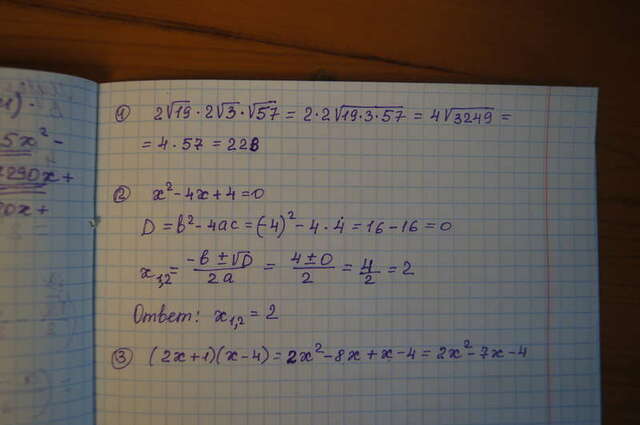 1) ·
5x² -
2290x +
0x +
① 2√19 · 2√3 · √57 = 2·2√19·3·57 = 4√3249 =
= 4 · 57 = 228
② x² - 4x + 4 = 0
D = b² - 4ac = (-4)² - 4 · 4 = 16 - 16 = 0
x₁,₂ = (-b ± √D)/(2a) = (4 ± 0)/2 = 4/2 = 2
Ответ: x₁,₂ = 2
③ (2x+1)(x-4) = 2x² - 8x + x - 4 = 2x² - 7x - 4